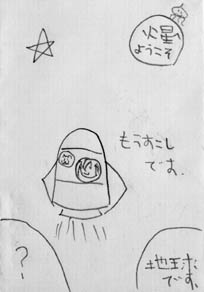 火星
ようこそ
もうすこし
です.
?
地球
です.